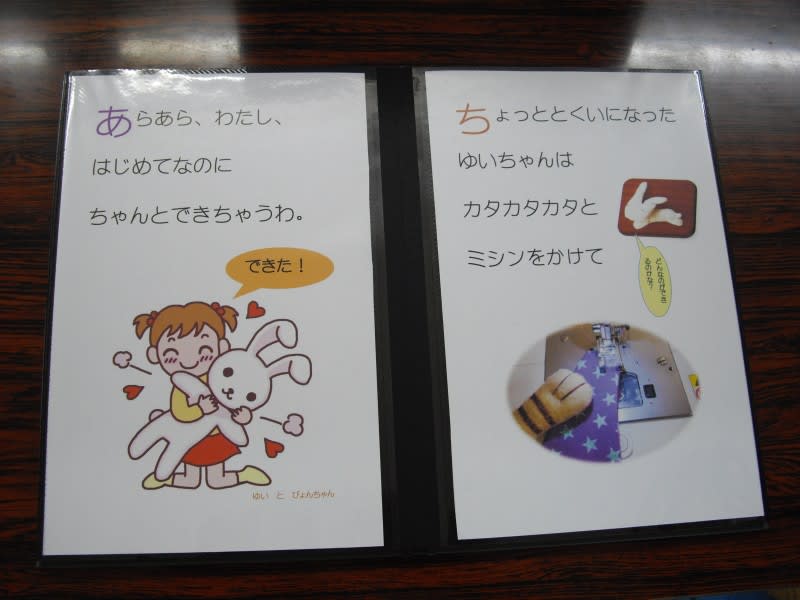 あらあら、わたし、
はじめてなのに
ちゃんとできちゃうわ。
できた！
ゆい と ぴょんちゃん
ちょっととくいになった
ゆいちゃんは
カタカタカタと
ミシンをかけて
どんなのができ
るのかな？